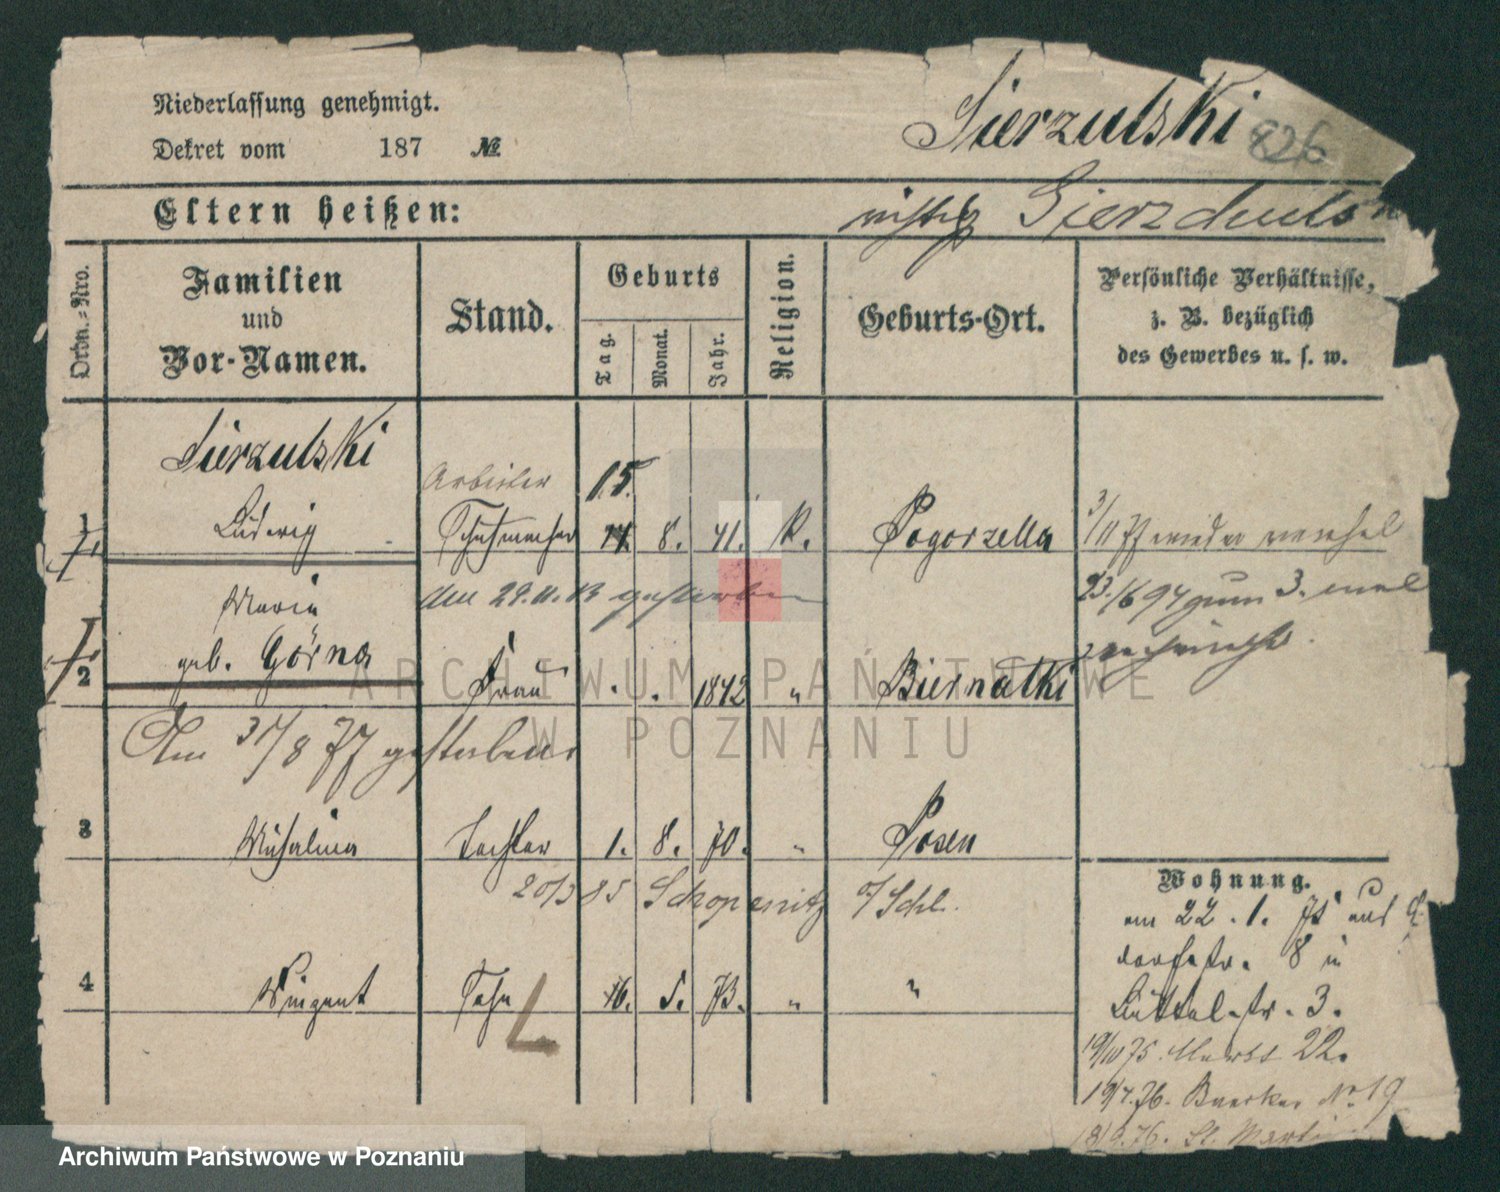 Niederlassung genehmigt.
Dekret vom 187 №
Sierzulski
826
Eltern heißen:
richtig Sierzduls
Ordn.=Nro.
Familien
und
Vor-Namen.
Stand.
Geburts
Tag.
Monat.
Jahr.
Religion.
Geburts-Ort.
Persönliche Verhältnisse,
z. B. bezüglich
des Gewerbes u. s. w.
Sierzulski
Arbeiter 15.
1 Ludwig Schuhmacher 14. 8. 41. K. Pogorzella
3/11 77 wieder
den 29. 11. 13 gestorben
23./6 94 zum 3. mal
Maria
geb. Görna
2 Frau . . 1842 " Biernatki
Am 31/8 77 gestorben
3 Michalina Tochter 1. 8. 70. " Posen
20/3 85 Schoppinitz o/Schl.
4 Vinzent Sohn 16. 5. 73. " "
Wohnung.
am 22. 1. 75 aus
dorfstr. 8 in
Büttelstr. 3.
19/11 75. Markt 22.
19/4. 76. № 19
18/9. 76. St. Martin
ARCHIWUM PAŃSTWOWE
W POZNANIU
Archiwum Państwowe w Poznaniu